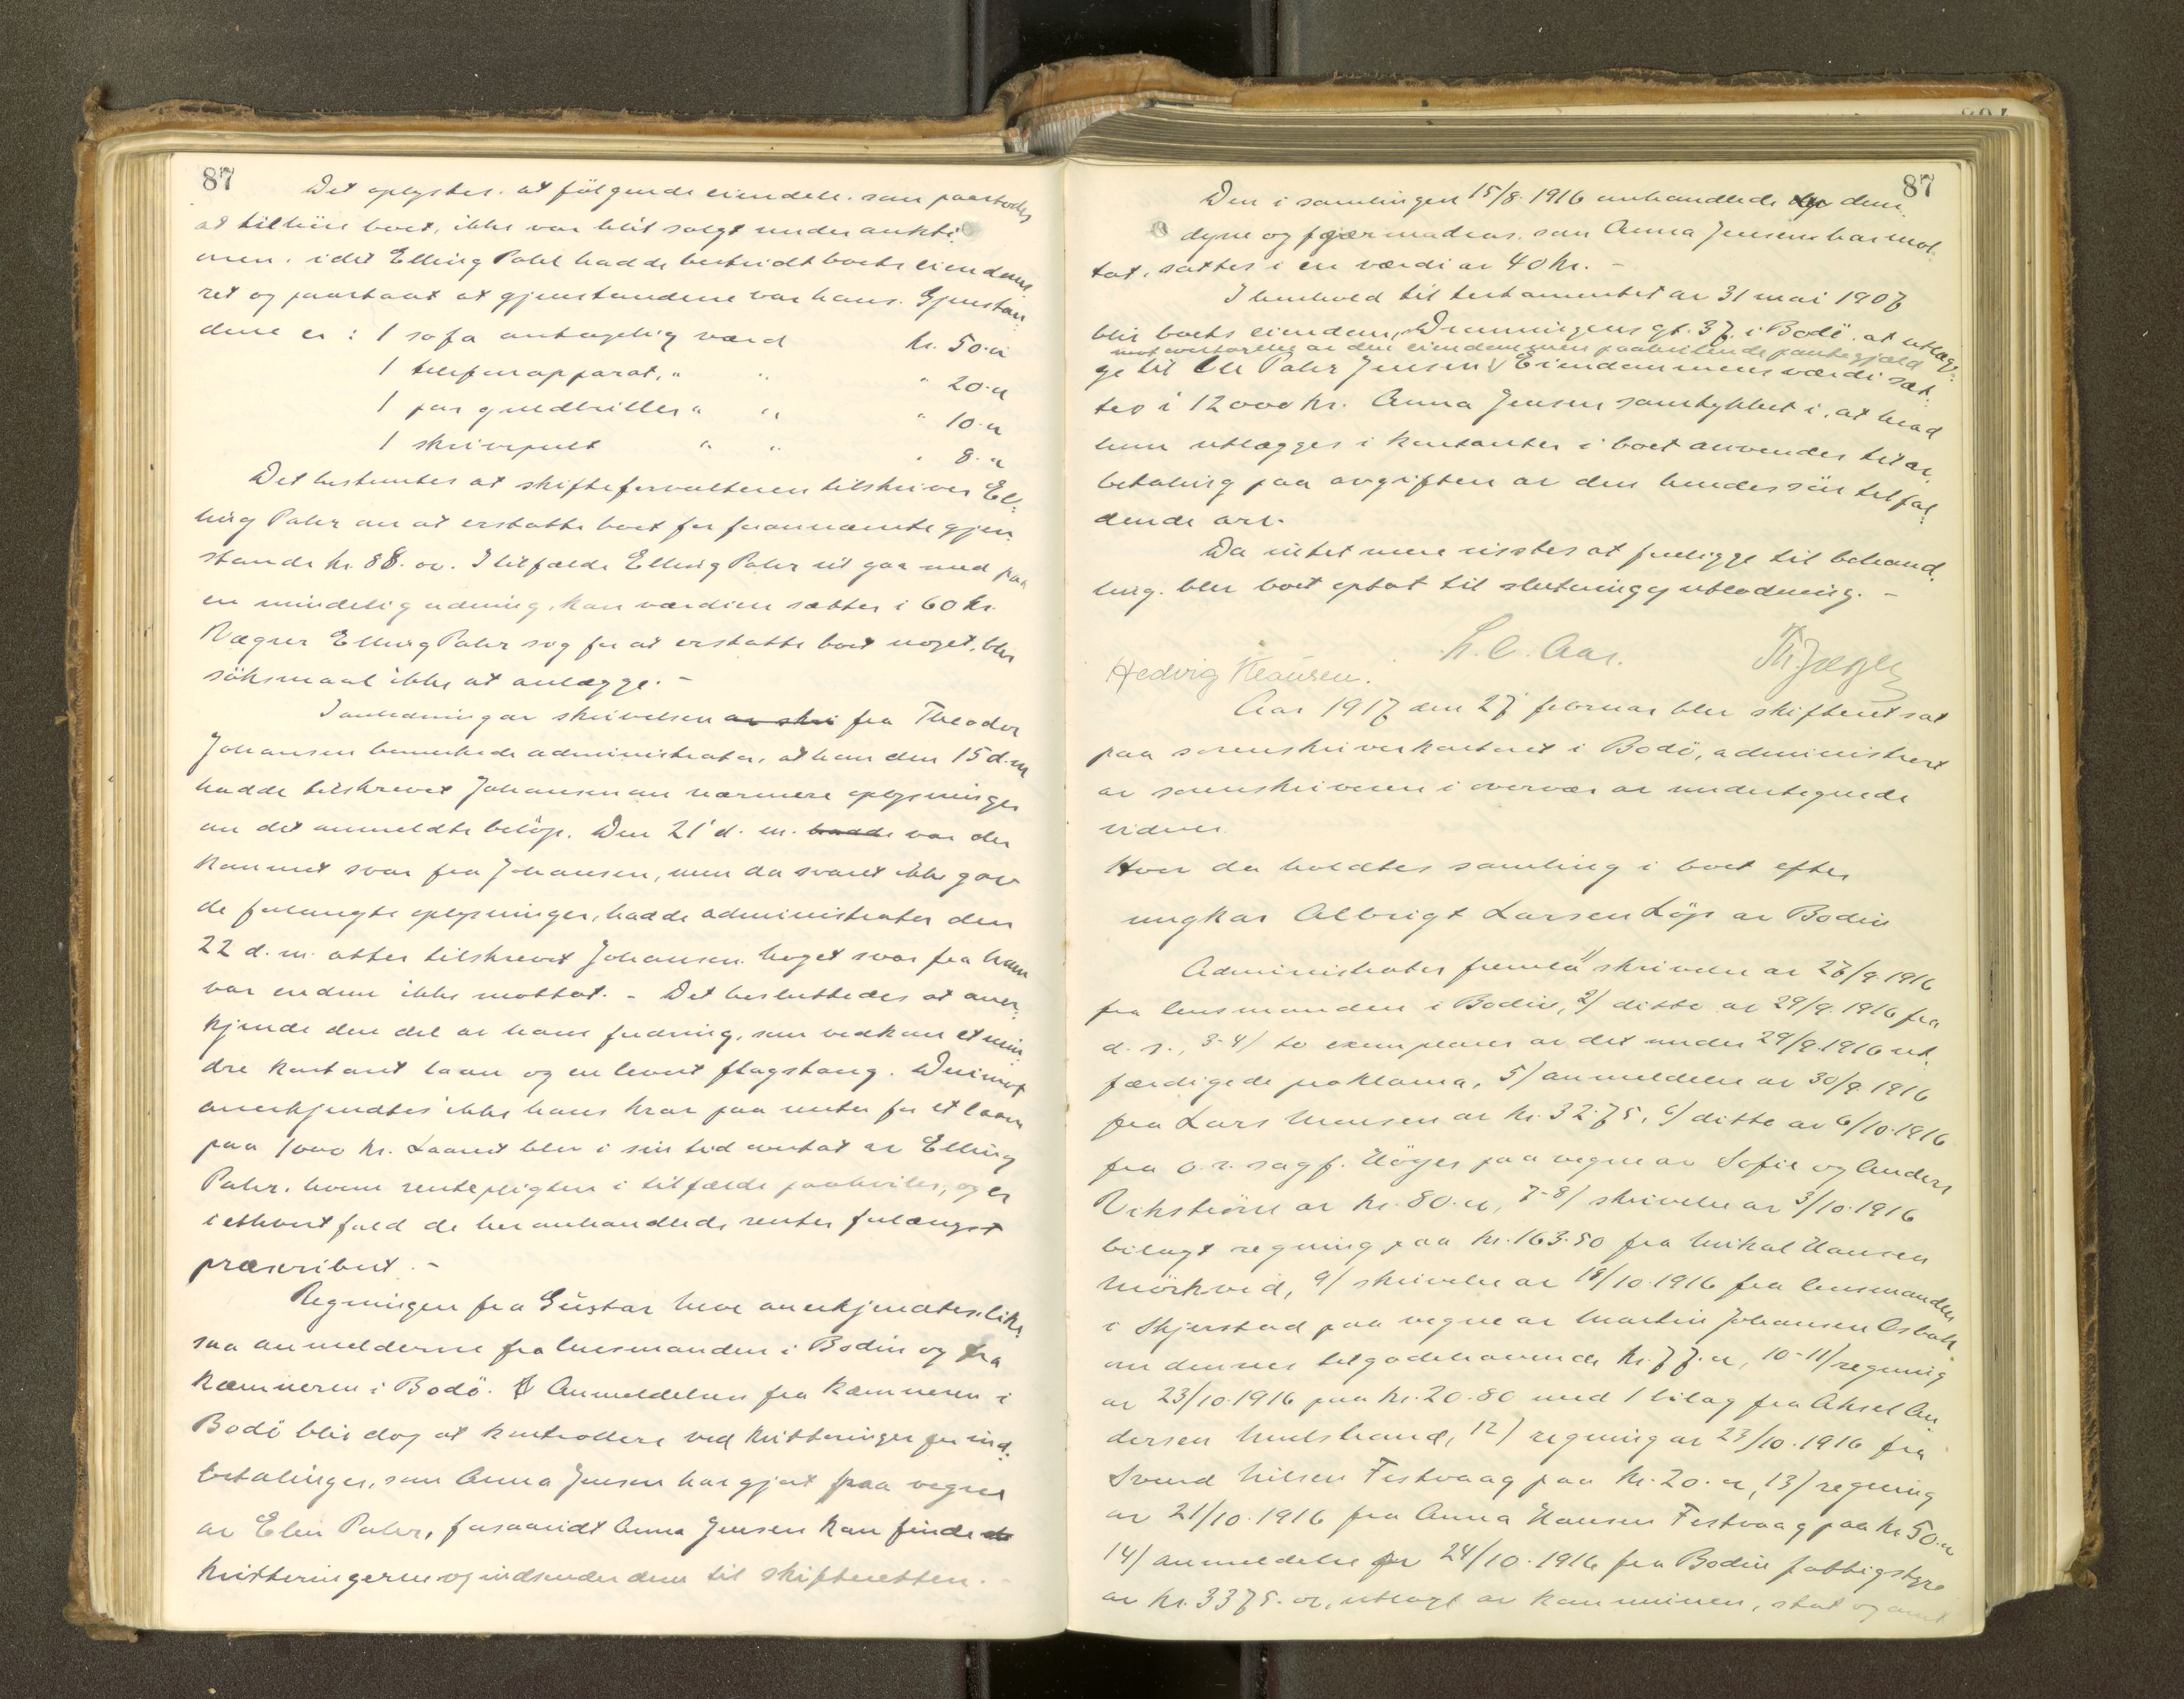 87
Det oplystes, at følgende eiendele, som paastodes
at tilhøre boet, ikke var blit solgt under auktio-
nen, idet Elling Pahr hadde bestridt boets eiendoms
ret og paastaat at gjenstandene var hans. Gjenstan-
dene er: 1 sofa antagelig værd kr. 50.00
1 telefonapparat, " " " 20.00
1 par guldbriller " " " 10.00
1 skrivepult " " " 8.00
Det bestemtes at skifteforvalteren tilskriver El-
ling Pahr om at erstatte boet for forannævnte gjen-
stande kr. 88.00. I tilfælde Elling Pahr vil gaa med paa
en mindelig ordning, kan værdien sættes i 60 kr.
Nægter Elling Pahr sig for at erstatte boet noget, blir
søksmaal ikke at anlægge. -
I anledning av skrivelsen av skri fra Theodor
Johansen bemerkede administrator, at han den 15 d.m.
hadde tilskrevet Johansen om nærmere oplysninger
om det anmeldte beløp. Den 21' d. m. hadde var der
kommet svar fra Johansen, men da svaret ikke gav
de forlangte oplysninger, hadde administrator den
22 d. m. atter tilskrevet Johansen. Noget svar fra ham
var endnu ikke mottat. - Det besluttedes at aner-
kjende den del av hans fordring, som vedkom et min-
dre kontant laan og en levert flagstang. Derimot
anerkjendtes ikke hans krav paa renter for et laan
paa 1000 kr. Laanet blev i sin tid overtat av Elling
Pahr, hvem rentepligten i tilfælde paahviler, og er
i ethvert fald de her omhandlede renter forlængst
præscribert. -
Regningen fra Gustav Moe anerkjendtes, like-
saa anmelderne fra lensmanden i Bodin og fra
kæmneren i Bodø. Anmeldelsen fra kæmneren i
Bodø blir dog at kontrollere ved kvitteringer for ind-
betalinger, som Anna Jensen har gjort paa vegne
av Elen Pahr, forsaavidt Anna Jensen kan finde de
kvitteringerne og indsender dem til skifteretten. -
87
Den i samlingen 15/8 1916 omhandlede dyne
dyne og fjærmadras, som Anna Jensen har mot-
tat, sættes i en værdi av 40 kr. -
I henhold til testamentet av 31 mai 1907
blir boets eiendom, Dronningens gt. 37 i Bodø, at utlæg-
mot overtagelse av den eiendommen paahvilende pantegjæld
ge til Ole Pahr Jensen. Eiendommens værdi sæt-
tes i 12000 kr. Anna Jensen samtykket i, at hvad
hun utlægges i kontanter i boet anvendes til av-
betaling paa avgiften av den hendes søn tilfal-
dende arv.
Da intet mere vistes at foreligge til behand-
ling, blev boet optat til slutning og utlodning. -
L. C. Aas. Th. Jæger
Hedvig Klausen.
Aar 1917 den 27 februar blev skifteret sat
paa sorenskriverkontoret i Bodø, administrert
av sorenskriveren i overvær av undertegnede
vidner.
Hvor da holdtes samling i boet efter
ungkar Albrigt Larsen Løp av Bodin
Administrator fremla 1/ skrivelse av 26/9 1916
fra lensmanden i Bodin, 2/ ditto av 29/9 1916 fra
d. s., 3-4/ to exemplarer av det under 29/9 1916 ut-
færdigede proklama, 5/ anmeldelse av 30/9 1916
fra Lars Monsen av kr. 32.75, 6/ ditto av 6/10 1916
fra o.r. sagf. Høyer paa vegne av Sofie og Anders
Vikstrøm av kr. 80.00, 7-8/ skrivelse av 3/10 1916
bilagt regning paa kr. 163.50 fra Mikal Hansen
Mørkved, 9/ skrivelse av 18/10 1916 fra lensmanden
i Skjerstad paa vegne av Martin Johansen Osbak
om dennes tilgodehavende kr. 77.00, 10-11/ regning
av 23/10 1916 paa kr. 20.80 med 1 bilag fra Aksel An-
dersen , 12/ regning av 23/10 1916 fra
Svend Nilsen Festvaag paa kr. 20.00, 13/ regning
av 21/10 1916 fra Anna Hansen Festvaag paa kr. 50.00
14/ anmeldelse av 24/10 1916 fra Bodin fattigstyre
av kr. 3375.00, utlagt av kommunen, stat og amt